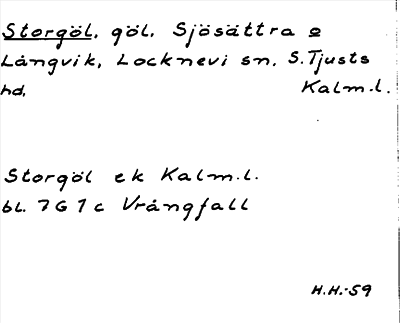 Storgöl, göl, Sjösättra o
Långvik, Locknevi sn, S.Tjusts
hd, Kalm.l.
Storgöl ek Kalm.l.
bl. 7G1c Vrångfall
H.H.-59